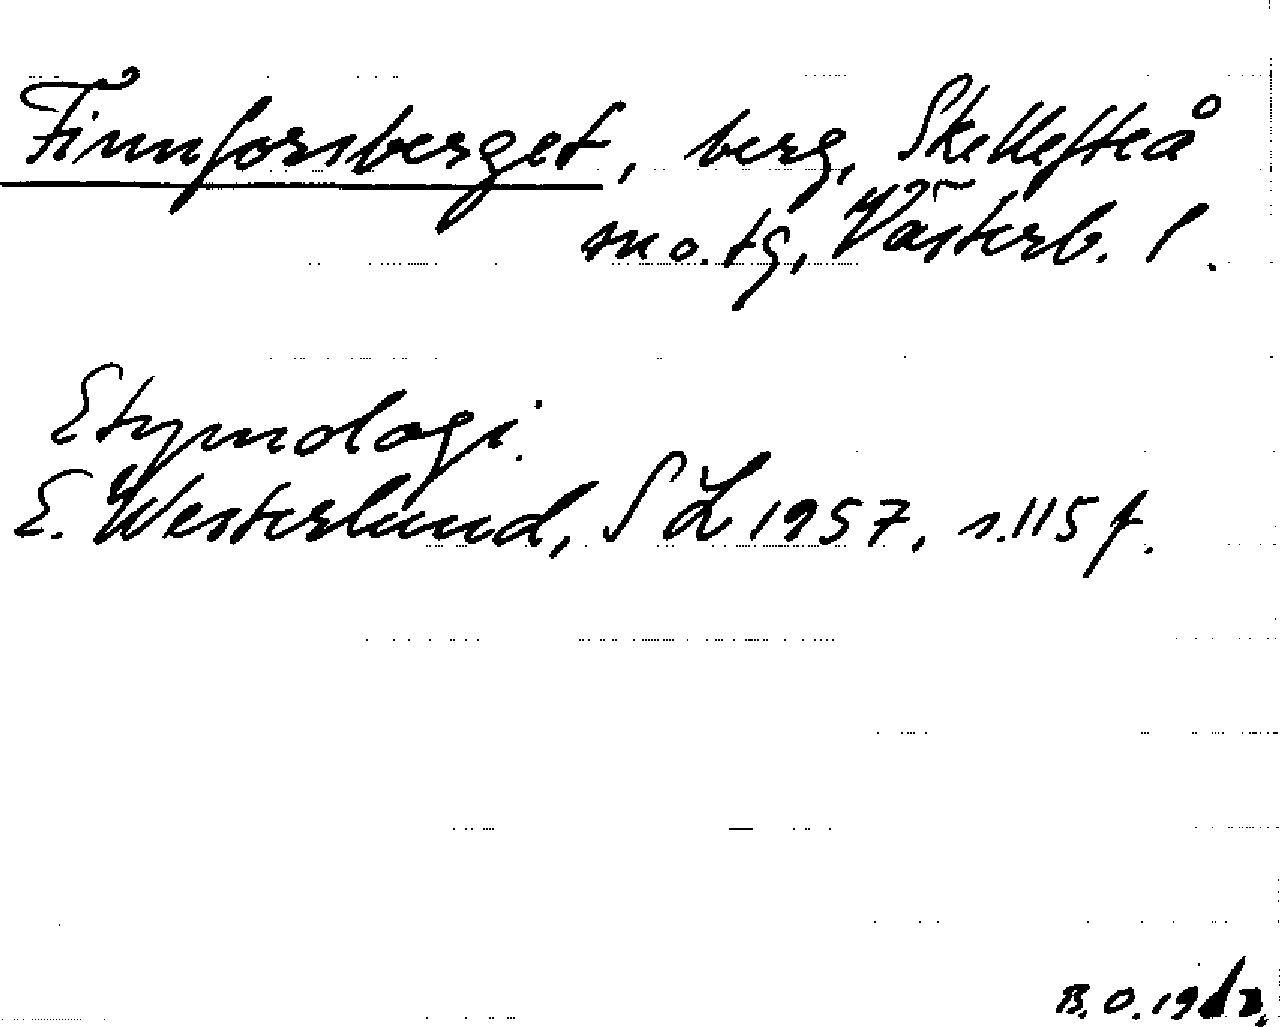 Finnforsberget, berg, Skellefteå
sn o. tg, Västerb. l.
Etymologi.
E. Westerlund, SL 1957, s. 115 f.
B. O.